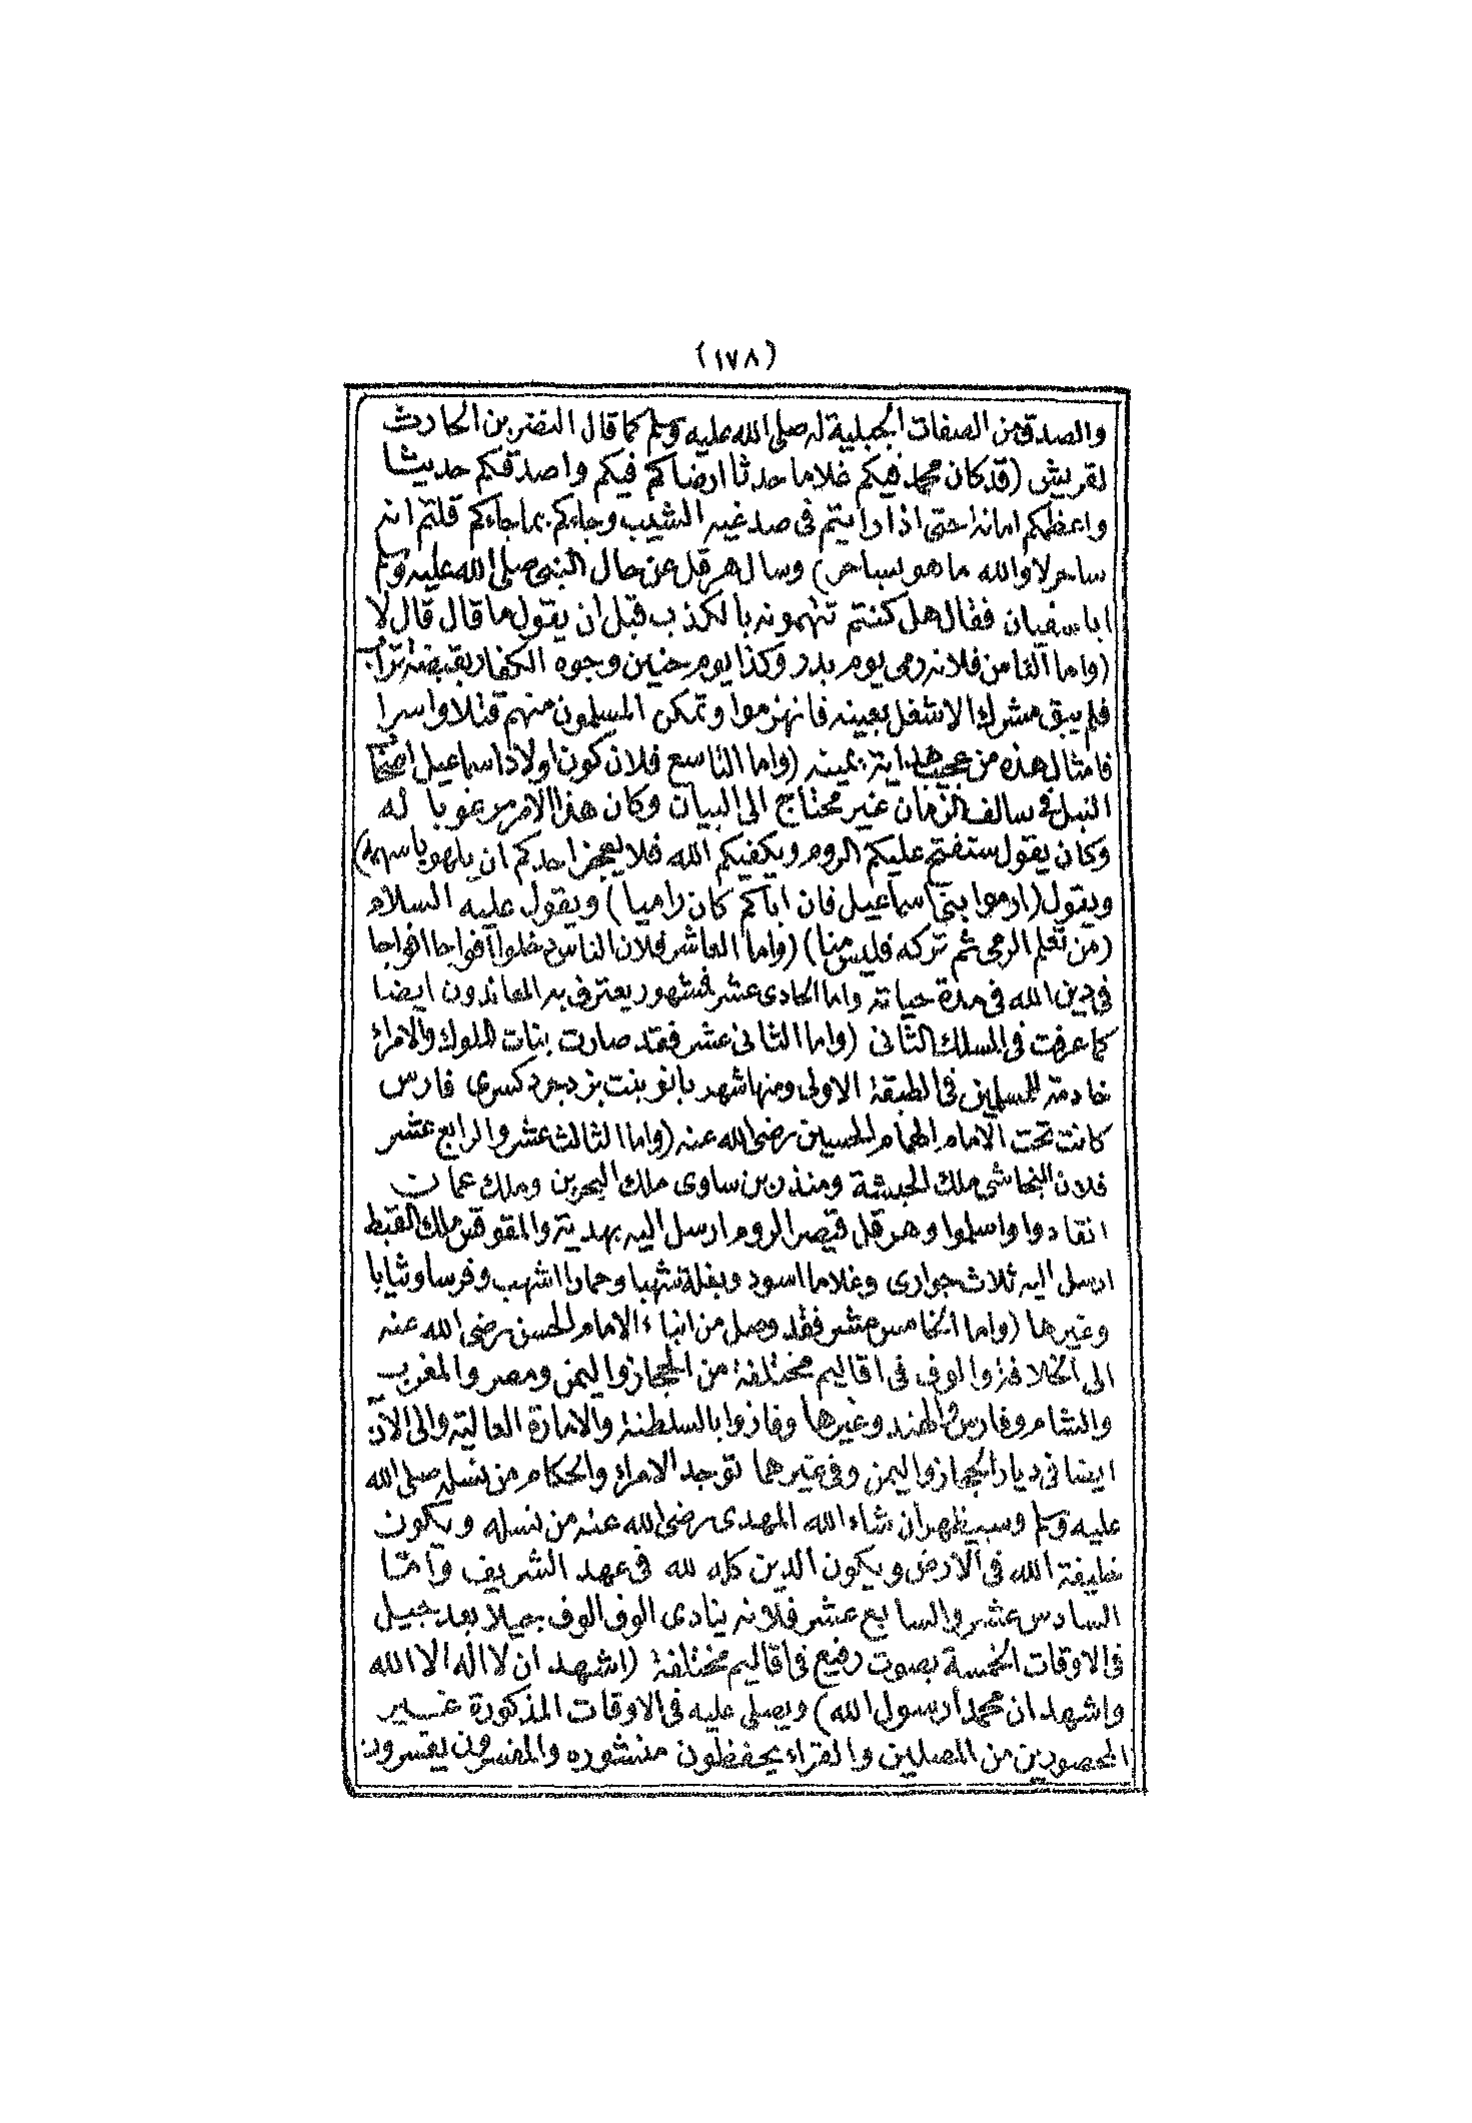 (١٧٨)
والصدق من الصفات الجبلية له صلى الله عليه وسلم كما قال النضر بن الحارث
لقريش (قد كان محمد فيكم غلاما حدثا ارضاكم فيكم واصدقكم حديثا
واعظمكم امانة حتى اذا رايتم فى صدغيه الشيب وجاءكم بما جاءكم قلتم انه
ساحر لا والله ما هو بساحر) وسال هرقل عن حال النبى صلى الله عليه وسلم
ابا سفيان فقال هل كنتم تتهمونه بالكذب قبل ان يقول ما قال قال لا
(واما الثامن فلانه رمى يوم بدر وكذا يوم حنين وجوه الكفار بقبضة تراب
فلم يبق مشرك الا شغل بعينه فانهزموا وتمكن المسلمون منهم قتلا واسرا
فامثال هذه من عجيب هداية يمينه (واما التاسع فلان كون اولاد اسماعيل اصحاب
النبل فى سالف الزمان غير محتاج الى البيان وكان هذا الامر مرغوبا له
وكان يقول ستفتح عليكم الروم ويكفيكم الله فلا يعجز احدكم ان يلهو باسهمه)
ويقول (ارموا بنى اسماعيل فان اباكم كان راميا) ويقول عليه السلام
(من تعلم الرمى ثم تركه فليس منا) (واما العاشر فلان الناس دخلوا افواجا افواجا
فى دين الله فى مدة حياته واما الحادى عشر فمشهور يعترف به المعاندون ايضا
كما عرفت فى المسلك الثانى (واما الثانى عشر فقد صارت بنات الملوك والامراء
خادمة للمسلمين فى الطبقة الاولى ومنها شهر بانو بنت يزدجرد كسرى فارس
كانت تحت الامام الهمام الحسين رضى الله عنه (واما الثالث عشر والرابع عشر
فلان النجاشى ملك الحبشة ومنذر بن ساوى ملك البحرين وملك عمان
انقادوا واسلموا وهرقل قيصر الروم ارسل اليه بهدية والمقوقس ملك القبط
ارسل اليه ثلاث جوارى وغلاما اسود وبغلة شهبا وحمارا اشهب وفرسا وثيابا
وغيرها (واما الخامس عشر فقد وصل من ابناء الامام الحسن رضى الله عنه
الى الخلافة والوف فى اقاليم مختلفة من الحجاز واليمن ومصر والمغرب
والشام وفارس والهند وغيرها وفازوا بالسلطنة والامارة العالية والى الان
ايضا فى ديار الحجاز واليمن وفى غيرهما توجد الامراء والحكام من نسله صلى الله
عليه وسلم وسيظهر ان شاء الله المهدى رضى الله عنه من نسله ويكون
خليفة الله فى الارض ويكون الدين كله لله فى عهد الشريف واما
السادس عشر والسابع عشر فلانه ينادى الوف الوف جيلا بعد جيل
فى الاوقات الخمسة بصوت رفيع فى اقاليم مختلفة (اشهد ان لا اله الا الله
واشهد ان محمدا رسول الله) ويصلى عليه فى الاوقات المذكورة غير
المحصورين من المصلين والقراء يحفظون منشوره والمفسرون يفسرون